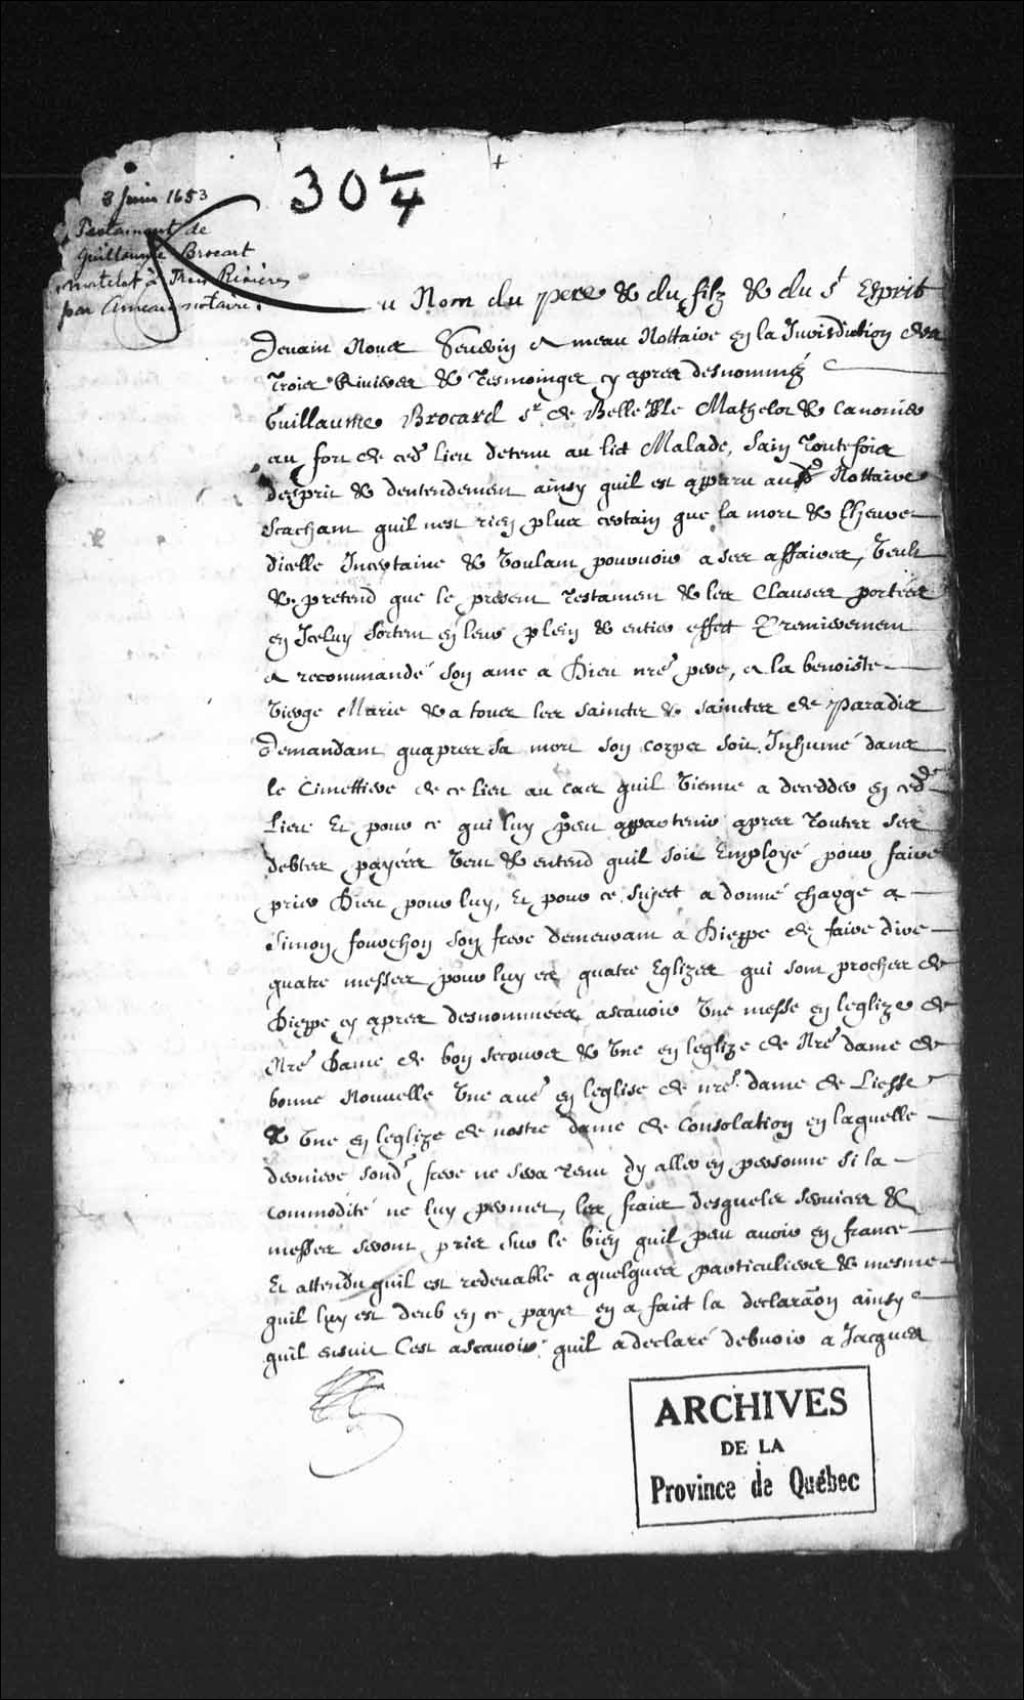 304
3 Juin 1653
Testament de
Guillaume Brocart
matelot à Trois Rivières
par Ameau notaire.
Au Nom du pere & du filz & du St Esprit
Devant Nous Severin Ameau Nottaire en la Jurisdiction des
Trois Rivieres & tesmoinges cy apres desnommez
Guillaume Brocard Sr de Belle Isle Mathelot & Canonier
au fort de ced lieu detenu au lict Malade, sain toutefois
desprit & dentendement ainsy quil est apparu aud Nottaire
Scachant quil nest rien plus certain que la mort & lheure
dicelle Incertaine & Voulant pourvoir a ses affaires, Veult
& pretend que le present testament & les Clauses portées
en Iceluy sortent en leur plein & entier effect Premierement
a recommandé son ame a Dieu nre pere, a la benoiste
Vierge Marie & a tous les saincts & sainctes de Paradis
Demandant quapres sa mort son corps soit Inhumé dans
le Cimettiere de ce lieu au cas quil Vienne a decedder en ced
Lieu Et pour ce qui luy peut appartenir apres toutes ses
debtes payées Veut & entend quil soit Employé pour faire
prier Dieu pour luy, Et pour ce sujet a donné charge a
Simon fourchon son frere demeurant a Dieppe de faire dire
quatre messes pour luy es quatre Eglizes qui sont proches de
Dieppe cy apres desnommées ascavoir Une messe en leglize de
Nre Dame de bon secours & Une en leglize de Nre dame de
bonne Nouvelle Une aue en leglise de nre dame de Liesse
& Une en leglize de nostre dame de Consolation en laquelle
derniere sond frere ne sera tenu dy aller en personne si la
commodité ne luy permet, les frais desquels services &
messes seront pris sur le bien quil peut avoir en france
Et attendu quil est redevable a quelques particuliers & mesme
quil luy est deub en ce pays en a fait la declaraon ainsy
quil ensuit Cest ascavoir quil a declaré debvoir a Jacques
ARCHIVES
DE LA
Province de Québec